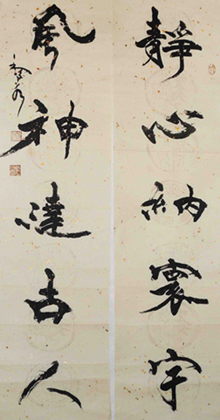 靜心納寰宇
風神達古人